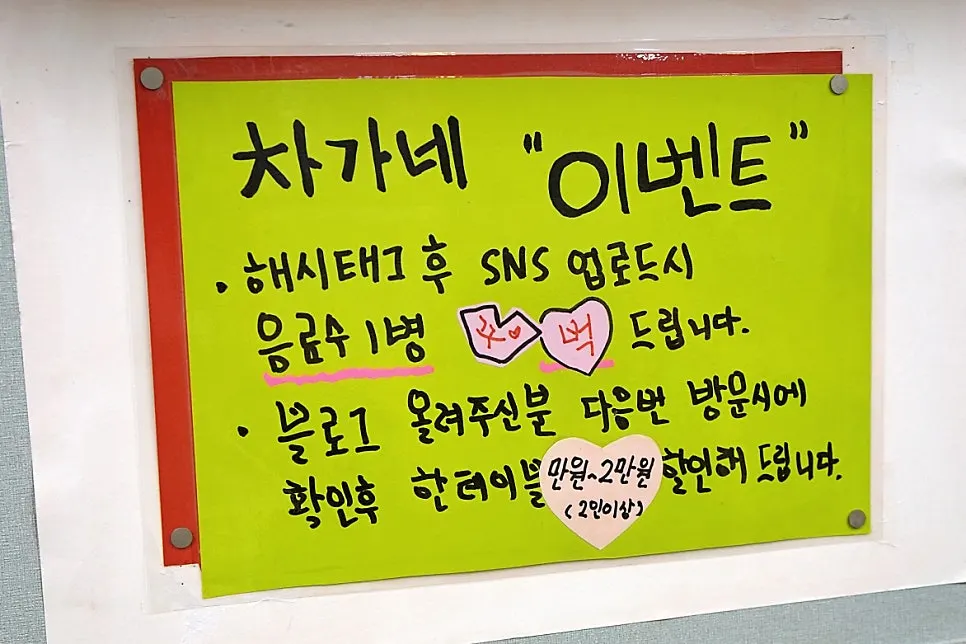 차가네 "이벤트"
· 해시태그후 SNS 업로드시
음료수 1병 드립니다.
· 블로그 올려주신분 다음번 방문시에
확인후 한테이블 만원~2만원 할인해 드립니다.
(2인이상)